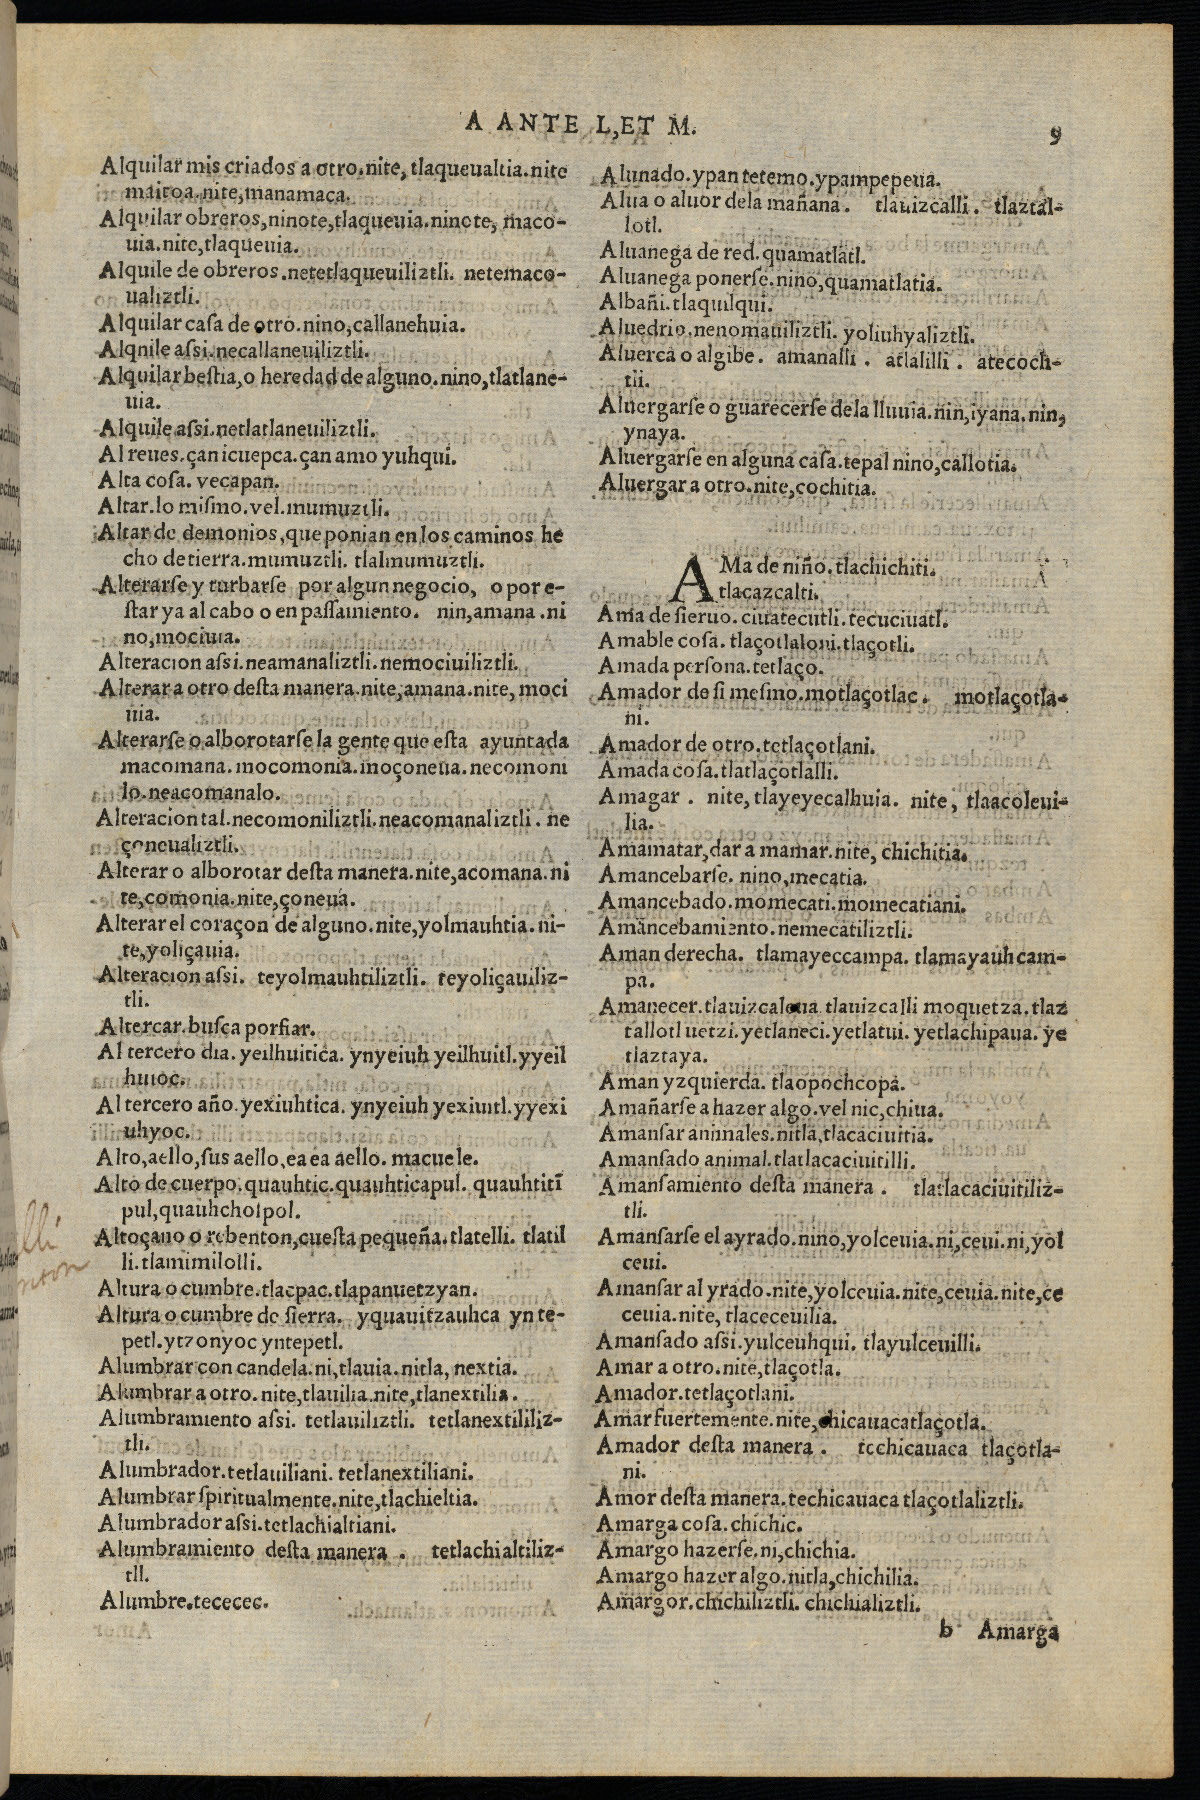 A ANTE L,ET M.
9
Alquilar mis criados a otro.nite, tlaqueualtia.nite
maitoa.nite,manamaca.
Alquilar obreros,ninote,tlaqueuia.ninote, maco-
uia.nite,tlaqueuia.
Alquile de obreros.netetlaqueuiliztli. netemaco-
ualiztli.
Alquilar casa de otro.nino,callanehuia.
Alqnile assi.necallaneuiliztli.
Alquilar bestia,o heredad de alguno.nino,tlatlane-
uia.
Alquile assi.netlatlaneuiliztli.
Al reues.çan icuepca.çan amo yuhqui.
Alta cosa. vecapan.
Altar.lo mismo.vel.mumuztli.
Altar de demonios,que ponian en los caminos he
cho de tierra.mumuztli. tlalmumuztli.
Alterarse y turbarse por algun negocio, o por e-
star ya al cabo o en passamiento. nin,amana.ni
no,mociuia.
Alteracion assi.neamanaliztli.nemociuiliztli.
Alterar a otro desta manera.nite,amana.nite, moci
uia.
Alterarse o alborotarse la gente que esta ayuntada
macomana.mocomonia.moçoneua.necomoni
lo.neacomanalo.
Alteracion tal.necomoniliztli.neacomanaliztli. ne
çoneualiztli.
Alterar o alborotar desta manera.nite,acomana.ni
te,comonia.nite,çoneua.
Alterar el coraçon de alguno.nite,yolmauhtia. ni-
te,yoliçauia.
Alteracion assi. teyolmauhtiliztli. teyoliçauiliz-
tli.
Altercar.busca porfiar.
Al tercero dia. yeilhuitica. ynyeiuh yeilhuitl.yyeil
huioc.
Al tercero año.yexiuhtica. ynyeiuh yexiuitl.yyexi
uhyoc.
Alto,aello,sus aello,ea ea aello. macuele.
Alto de cuerpo.quauhtic.quauhticapul. quauhtitī
pul,quauhcholpol.
Altoçano o rebenton,cuesta pequeña.tlatelli. tlatil
li.tlamimilolli.
Altura o cumbre.tlacpac.tlapanuetzyan.
Altura o cumbre de sierra. yquauitzauhca yn te-
petl.ytzonyoc yntepetl.
Alumbrar con candela.ni,tlauia.nitla, nextia.
Alumbrar a otro. nite,tlauilia.nite,tlanextilia.
Alumbramiento assi. tetlauiliztli. tetlanextililiz-
tli.
Alumbrador.tetlauiliani. tetlanextiliani.
Alumbrar spiritualmente.nite,tlachieltia.
Alumbrador assi.tetlachialtiani.
Alumbramiento desta manera. tetlachialtiliz-
tll.
Alumbre.tececec.
Alunado.ypan tetemo.ypampepeua.
Alua o aluor dela mañana. tlauizcalli. tlaztal-
lotl.
Aluanega de red. quamatlatl.
Aluanega ponerse.nino,quamatlatia.
Albañi.tlaquilqui.
Aluedrio.nenomauiliztli. yoliuhyaliztli.
Aluerca o algibe. amanalli. atlalilli. atecoch-
tli.
Aluergarse o guarecerse dela lluuia.nin,iyana.nin,
ynaya.
Aluergarse en alguna casa.tepal nino,callotia.
Aluergar a otro.nite,cochitia.
AMa de niño.tlachichiti.
tlacazcalti.
Ama de sieruo. ciuatecutli.tecuciuatl.
Amable cosa. tlaçotlaloni.tlaçotli.
Amada persona.tetlaço.
Amador de si mesmo.motlaçotlac. motlaçotla-
ni.
Amador de otro.tetlaçotlani.
Amada cosa.tlatlaçotlalli.
Amagar. nite,tlayeyecalhuia. nite, tlaacoleui-
lia.
Amamatar,dar a mamar.nite, chichitia.
Amancebarse. nino,mecatia.
Amancebado.momecati.momecatiani.
Amancebamiento.nemecatiliztli.
Aman derecha. tlamayeccampa. tlamayauhcam-
pa.
Amanecer.tlauizcaleua tlauizcalli moquetza.tlaz
tallotl uetzi.yetlaneci.yetlatui. yetlachipaua. ye
tlaztaya.
Aman yzquierda. tlaopochcopa.
Amañarse a hazer algo.vel nic,chiua.
Amansar animales.nitla,tlacaciuitia.
Amansado animal.tlatlacaciuitilli.
Amansamiento desta manera. tlatlacaciuitiliz-
tli.
Amansarse el ayrado.nino,yolceuia.ni,ceui.ni,yol
ceui.
Amansar al yrado.nite,yolceuia.nite,ceuia.nite,ce
ceuia.nite, tlaceceuilia.
Amansado assi.yulceuhqui. tlayulceuilli.
Amar a otro.nite,tlaçotla.
Amador.tetlaçotlani.
Amar fuertemente.nite,chicauacatlaçotla.
Amador desta manera. techicauaca tlaçotla-
ni.
Amor desta manera.techicauaca tlaçotlaliztli.
Amarga cosa.chichic.
Amargo hazerse.ni,chichia.
Amargo hazer algo.nitla,chichilia.
Amargor.chichiliztli. chichializtli.
b Amarga